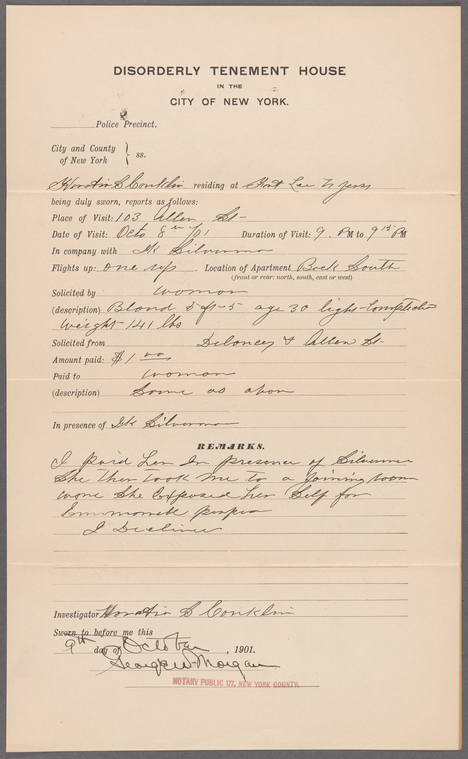 DISORDERLY TENEMENT HOUSE
IN THE
CITY OF NEW YORK.
Police Precinct.
City and County
of New York } ss.
Horatio S Conklin residing at Fort Lee N Jersy
being duly sworn, reports as follows:
Place of Visit: 103 Allen St
Date of Visit: Octo 8th /01 Duration of Visit: 9. PM to 9 15 PM
In company with Silverman
Flights up: one up. Location of Apartment Back South
(front or rear: north, south, east or west)
Solicited by woman
(description) Blond 5 ft-5 age 30 light-Complected
weight-141 lbs
Solicited from Delancey & Allen St-
Amount paid: $1 00
Paid to woman
(description) Same as above
In presence of Silverman
REMARKS.
I paid her In presence of Silverman
She then took me to a Joining room
were She Exposed her Self for
purpose
I Decline
Investigator Horatio S Conklin
Sworn to before me this
9th day of October, 1901.
George W Morgan
NOTARY PUBLIC 177, NEW YORK COUNTY.